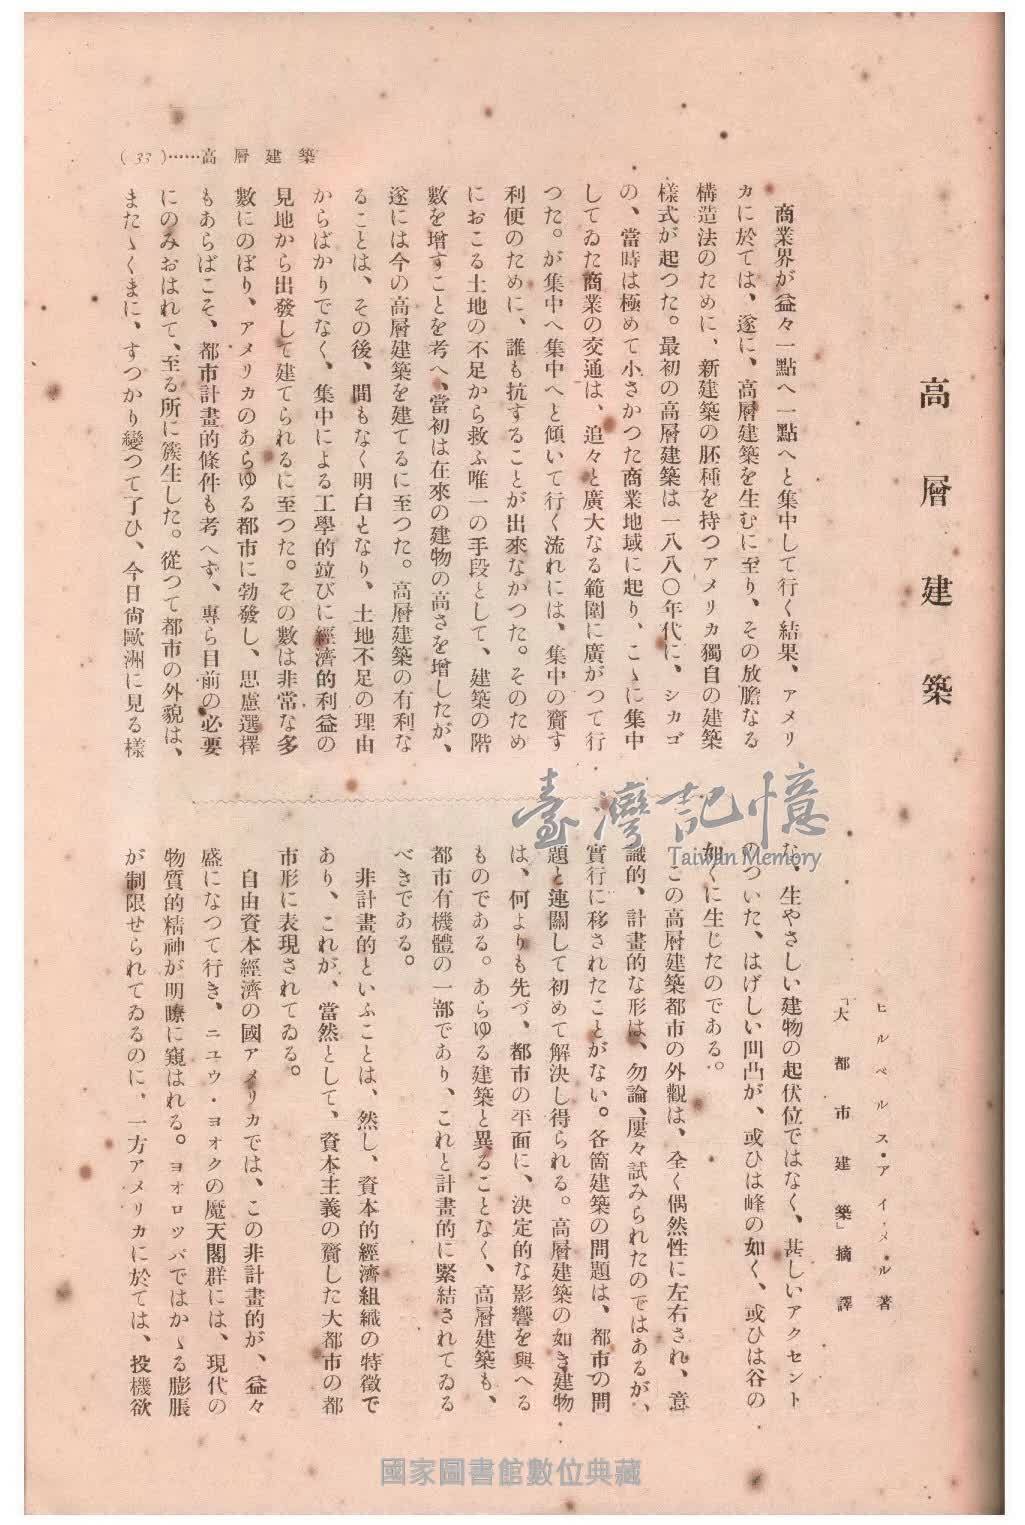 (33)……高層建築
高層建築
ヒルベルス・アイメル著
「大都市建築」摘譯
商業界が益々一點へ一點へと集中して行く結果、アメリ
カに於ては、遂に、高層建築を生むに至り、その放膽なる
構造法のために、新建築の胚種を持つアメリカ獨自の建築
樣式が起つた。最初の高層建築は一八八〇年代に、シカゴ
の、當時は極めて小さかつた商業地域に起り、こゝに集中
してゐた商業の交通は、追々と廣大なる範圍に廣がつて行
つた。が集中へ集中へと傾いて行く流れには、集中の齎す
利便のために、誰も抗することが出來なかつた。そのため
におこる土地の不足から救ふ唯一の手段として、建築の階
數を增すことを考へ、當初は在來の建物の高さを增したが、
遂には今の高層建築を建てるに至つた。高層建築の有利な
ることは、その後、間もなく明白となり、土地不足の理由
からばかりでなく、集中による工學的竝びに經濟的利益の
見地から出發して建てられるに至つた。その數は非常な多
數にのぼり、アメリカのあらゆる都市に勃發し、思慮選擇
もあらばこそ、都市計畫的條件も考へず、專ら目前の必要
にのみおはれて、至る所に簇生した。從つて都市の外貌は、
またゝくまに、すつかり變つて了ひ、今日尙歐洲に見る樣
な、生やさしい建物の起伏位ではなく、甚しいアクセント
のついた、はげしい凹凸が、或ひは峰の如く、或ひは谷の
如くに生じたのである。
この高層建築都市の外觀は、全く偶然性に左右され、意
識的、計畫的な形は、勿論、屢々試みられたのではあるが、
實行に移されたことがない。各箇建築の問題は、都市の問
題と連關して初めて解決し得られる。高層建築の如き建物
は、何よりも先づ、都市の平面に、決定的な影響を與へる
ものである。あらゆる建築と異ることなく、高層建築も、
都市有機體の一部であり、これと計畫的に緊結されてゐる
べきである。
非計畫的といふことは、然し、資本的經濟組織の特徵で
あり、これが、當然として、資本主義の齎した大都市の都
市形に表現されてゐる。
自由資本經濟の國アメリカでは、この非計畫的が、益々
盛になつて行き、ニユウ・ヨオクの魔天閣群には、現代の
物質的精神が明瞭に窺はれる。ヨオロッパではかゝる膨脹
が制限せられてゐるのに、一方アメリカに於ては、投機欲
臺灣記憶
Taiwan Memory
國家圖書館數位典藏